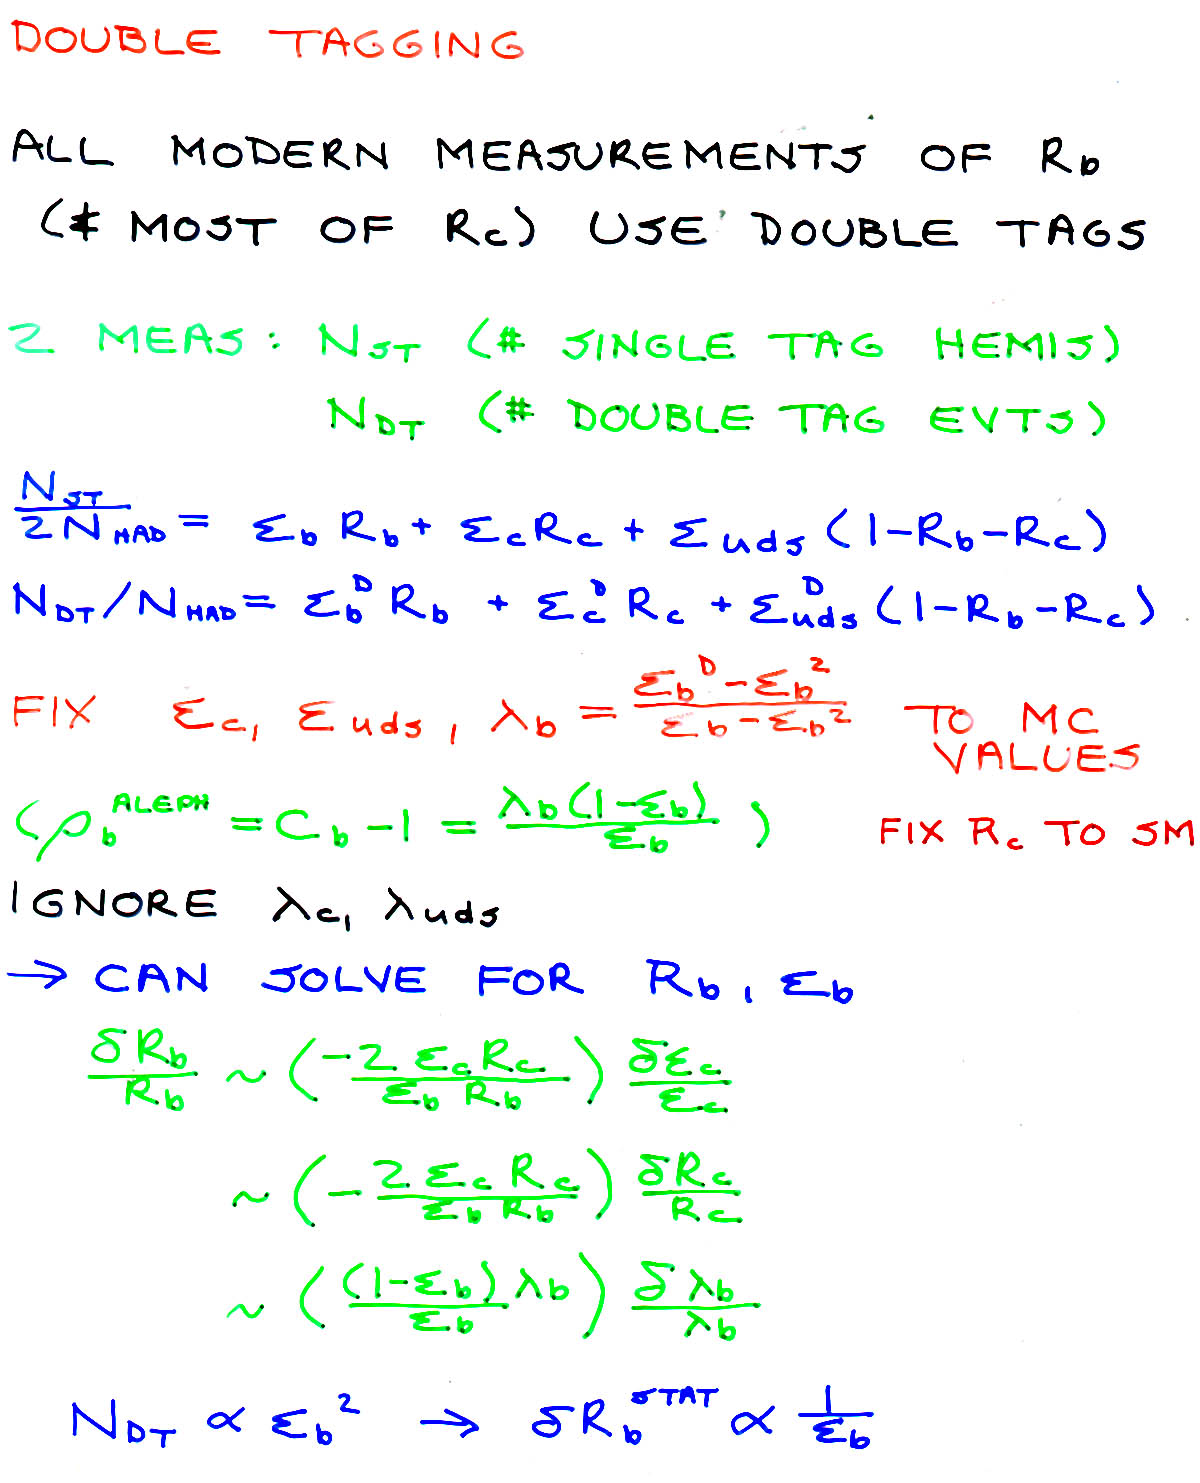 DOUBLE TAGGING
ALL MODERN MEASUREMENTS OF R_b
(& MOST OF R_c) USE DOUBLE TAGS
2 MEAS: N_ST (# SINGLE TAG HEMIS)
N_DT (# DOUBLE TAG EVTS)
N_ST / 2N_HAD = ε_b R_b + ε_c R_c + ε_uds (1-R_b-R_c)
N_DT/N_HAD = ε_b^D R_b + ε_c^D R_c + ε_uds^D (1-R_b-R_c)
FIX ε_c, ε_uds, λ_b = (ε_b^D - ε_b^2) / (ε_b - ε_b^2) TO MC
VALUES
(ρ_b^ALEPH = C_b - 1 = λ_b(1-ε_b) / ε_b) FIX R_c TO SM
IGNORE λ_c, λ_uds
→ CAN SOLVE FOR R_b, ε_b
δR_b / R_b ~ (-2 ε_c R_c / ε_b R_b) δε_c / ε_c
~ (-2 ε_c R_c / ε_b R_b) δR_c / R_c
~ ((1-ε_b) λ_b / ε_b) δλ_b / λ_b
N_DT ∝ ε_b^2 → δR_b^STAT ∝ 1 / ε_b